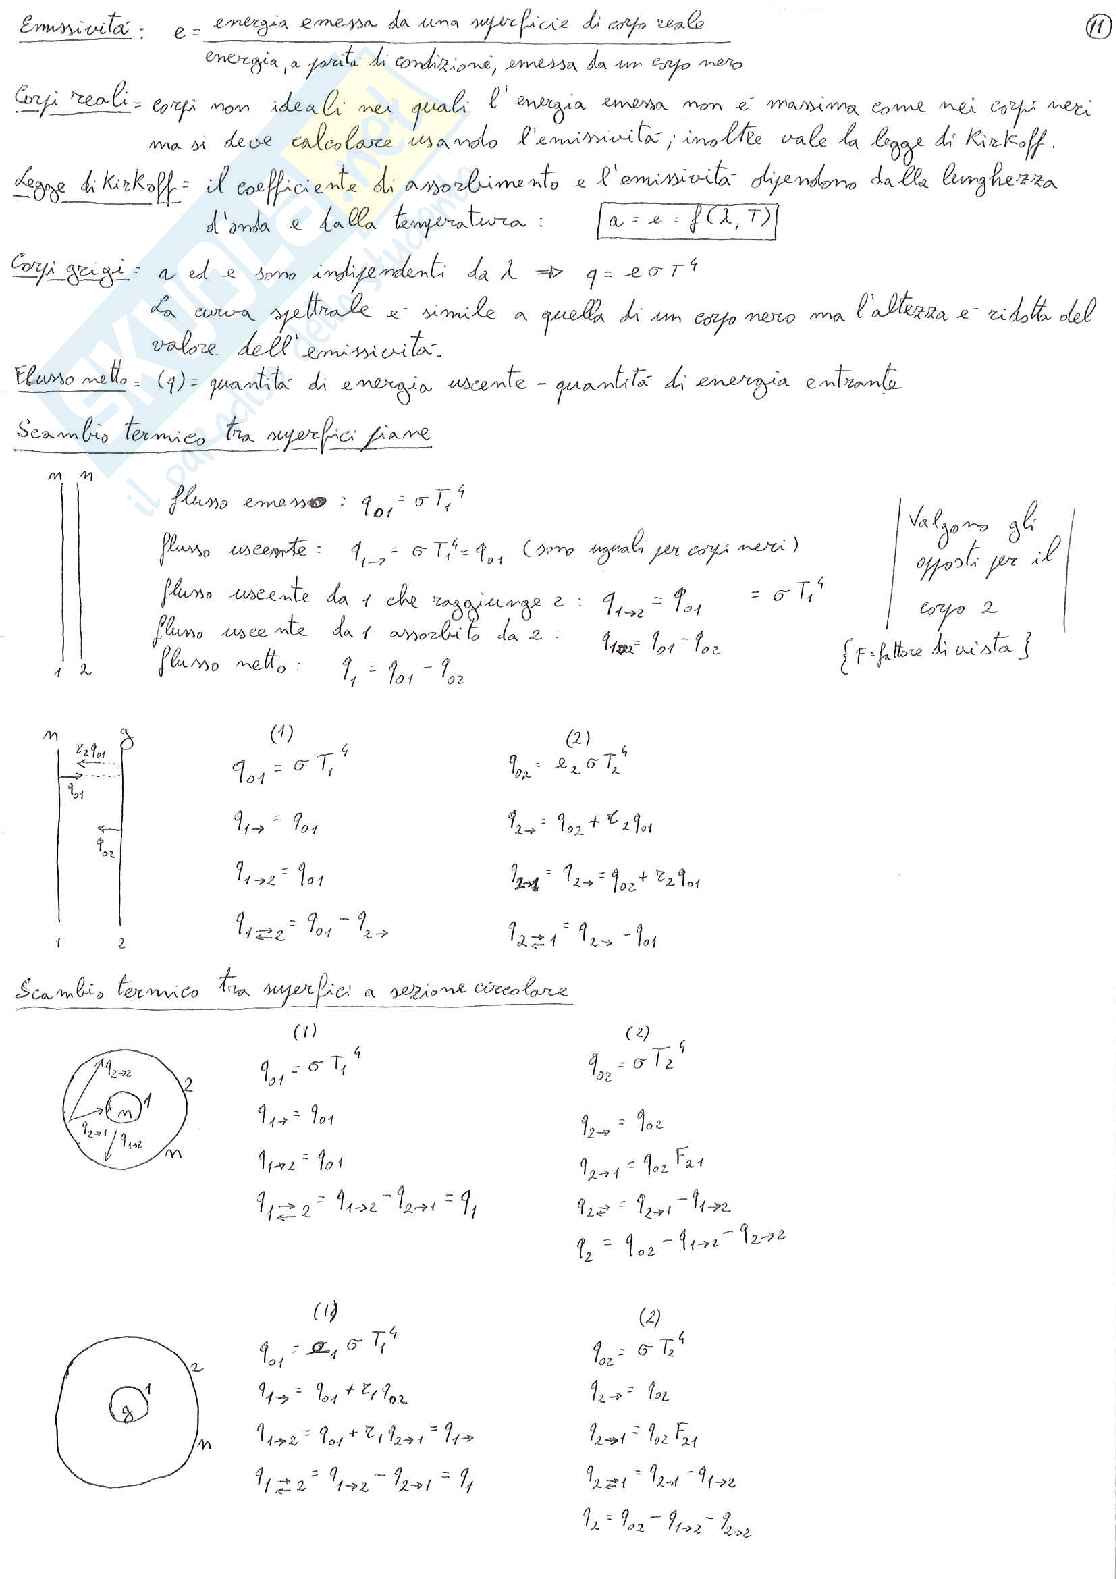 11
Emissività: e = energia emessa da una superficie di corpo reale
energia, a parità di condizioni, emessa da un corpo nero
Corpi reali = corpi non ideali nei quali l'energia emessa non è massima come nei corpi neri
ma si deve calcolare usando l'emissività; inoltre vale la legge di Kirkoff.
Legge di Kirkoff = il coefficiente di assorbimento e l'emissività dipendono dalla lunghezza
d'onda e dalla temperatura: a = e = f(λ, T)
Corpi grigi = a ed e sono indipendenti da λ ⇒ q = eσT⁴
La curva spettrale è simile a quella di un corpo nero ma l'altezza è ridotta del
valore dell'emissività.
Flusso netto = (q) = quantità di energia uscente - quantità di energia entrante
Scambio termico tra superfici piane
n n
flusso emesso: q01 = σT1⁴
flusso uscente: q1→ = σT1⁴ = q01 (sono uguali per corpi neri)
flusso uscente da 1 che raggiunge 2: q1→2 = q01 = σT1⁴
flusso uscente da 1 assorbito da 2: q1⇄2 = q01 - q02
flusso netto: q1 = q01 - q02
1 2
Valgono gli
opposti per il
corpo 2
{F = fattore di vista}
n g
r2q01
q01
q02
1 2
(1) (2)
q01 = σT1⁴ q02 = e2σT2⁴
q1→ = q01 q2→ = q02 + r2q01
q1→2 = q01 q2→1 = q2→ = q02 + r2q01
q1⇄2 = q01 - q2→ q2⇄1 = q2→ - q01
Scambio termico tra superfici a sezione circolare
q2→2
2
1
n
q2→1
q1→2
n
(1) (2)
q01 = σT1⁴ q02 = σT2⁴
q1→ = q01 q2→ = q02
q1→2 = q01 q2→1 = q02 F21
q1⇄2 = q1→2 - q2→1 = q1 q2⇄ = q2→1 - q1→2
q2 = q02 - q1→2 - q2→2
2
1
g
n
(1) (2)
q01 = e1σT1⁴ q02 = σT2⁴
q1→ = q01 + r1q02 q2→ = q02
q1→2 = q01 + r1q2→1 = q1→ q2→1 = q02 F21
q1⇄2 = q1→2 - q2→1 = q1 q2⇄1 = q2→1 - q1→2
q2 = q02 - q1→2 - q2→2